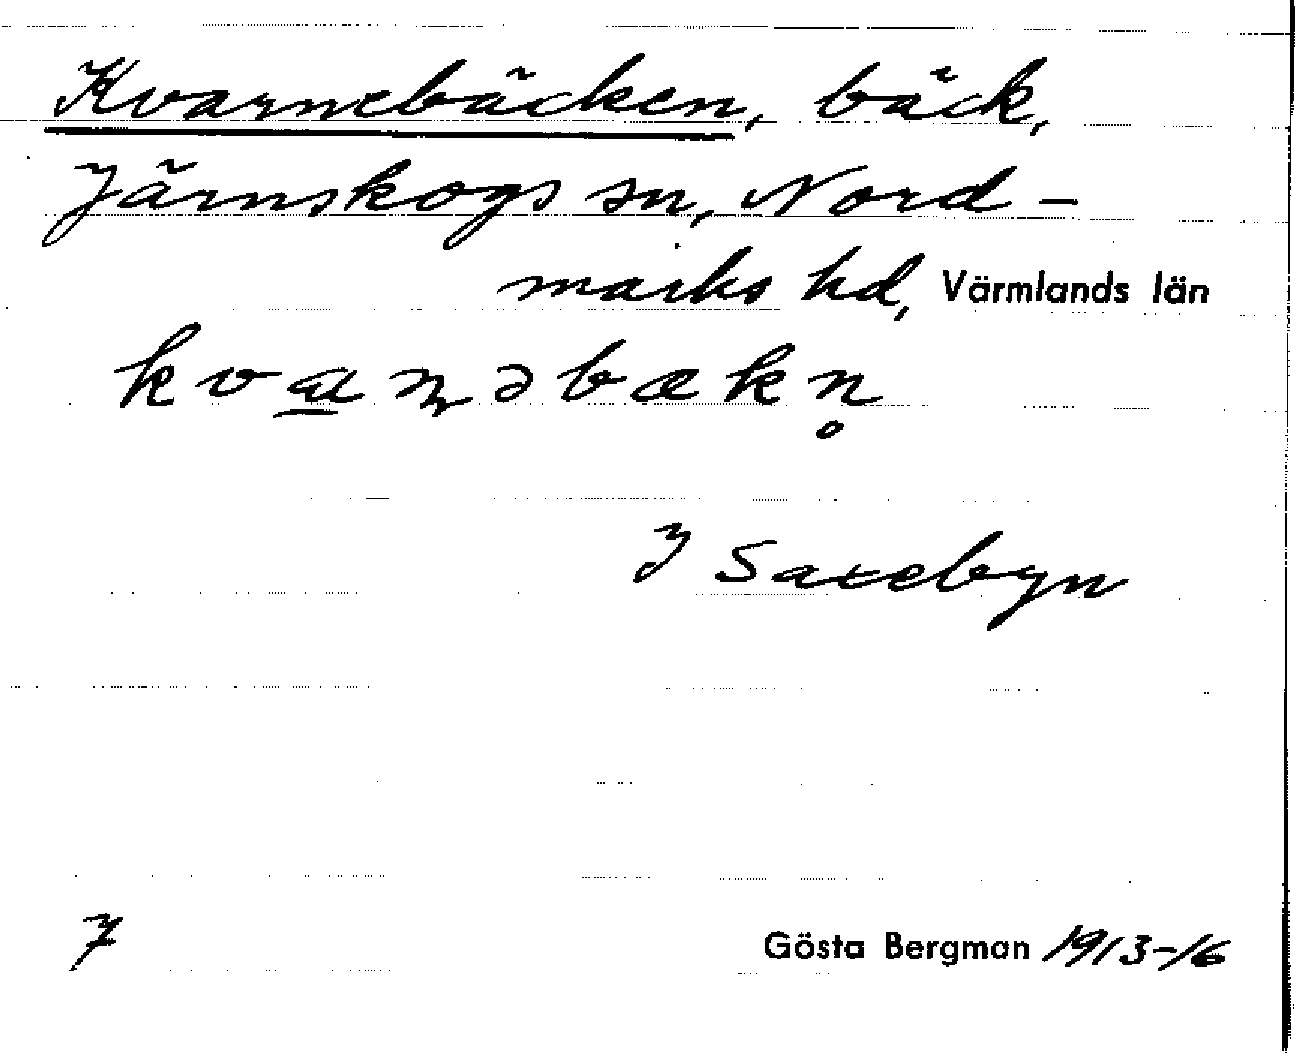 Kvarnebäcken, bäck,
Järnskogs sn, Nord-
marks hd, Värmlands län
kvaɳəbækn̥
I Saxebyn
7
Gösta Bergman 1913-16